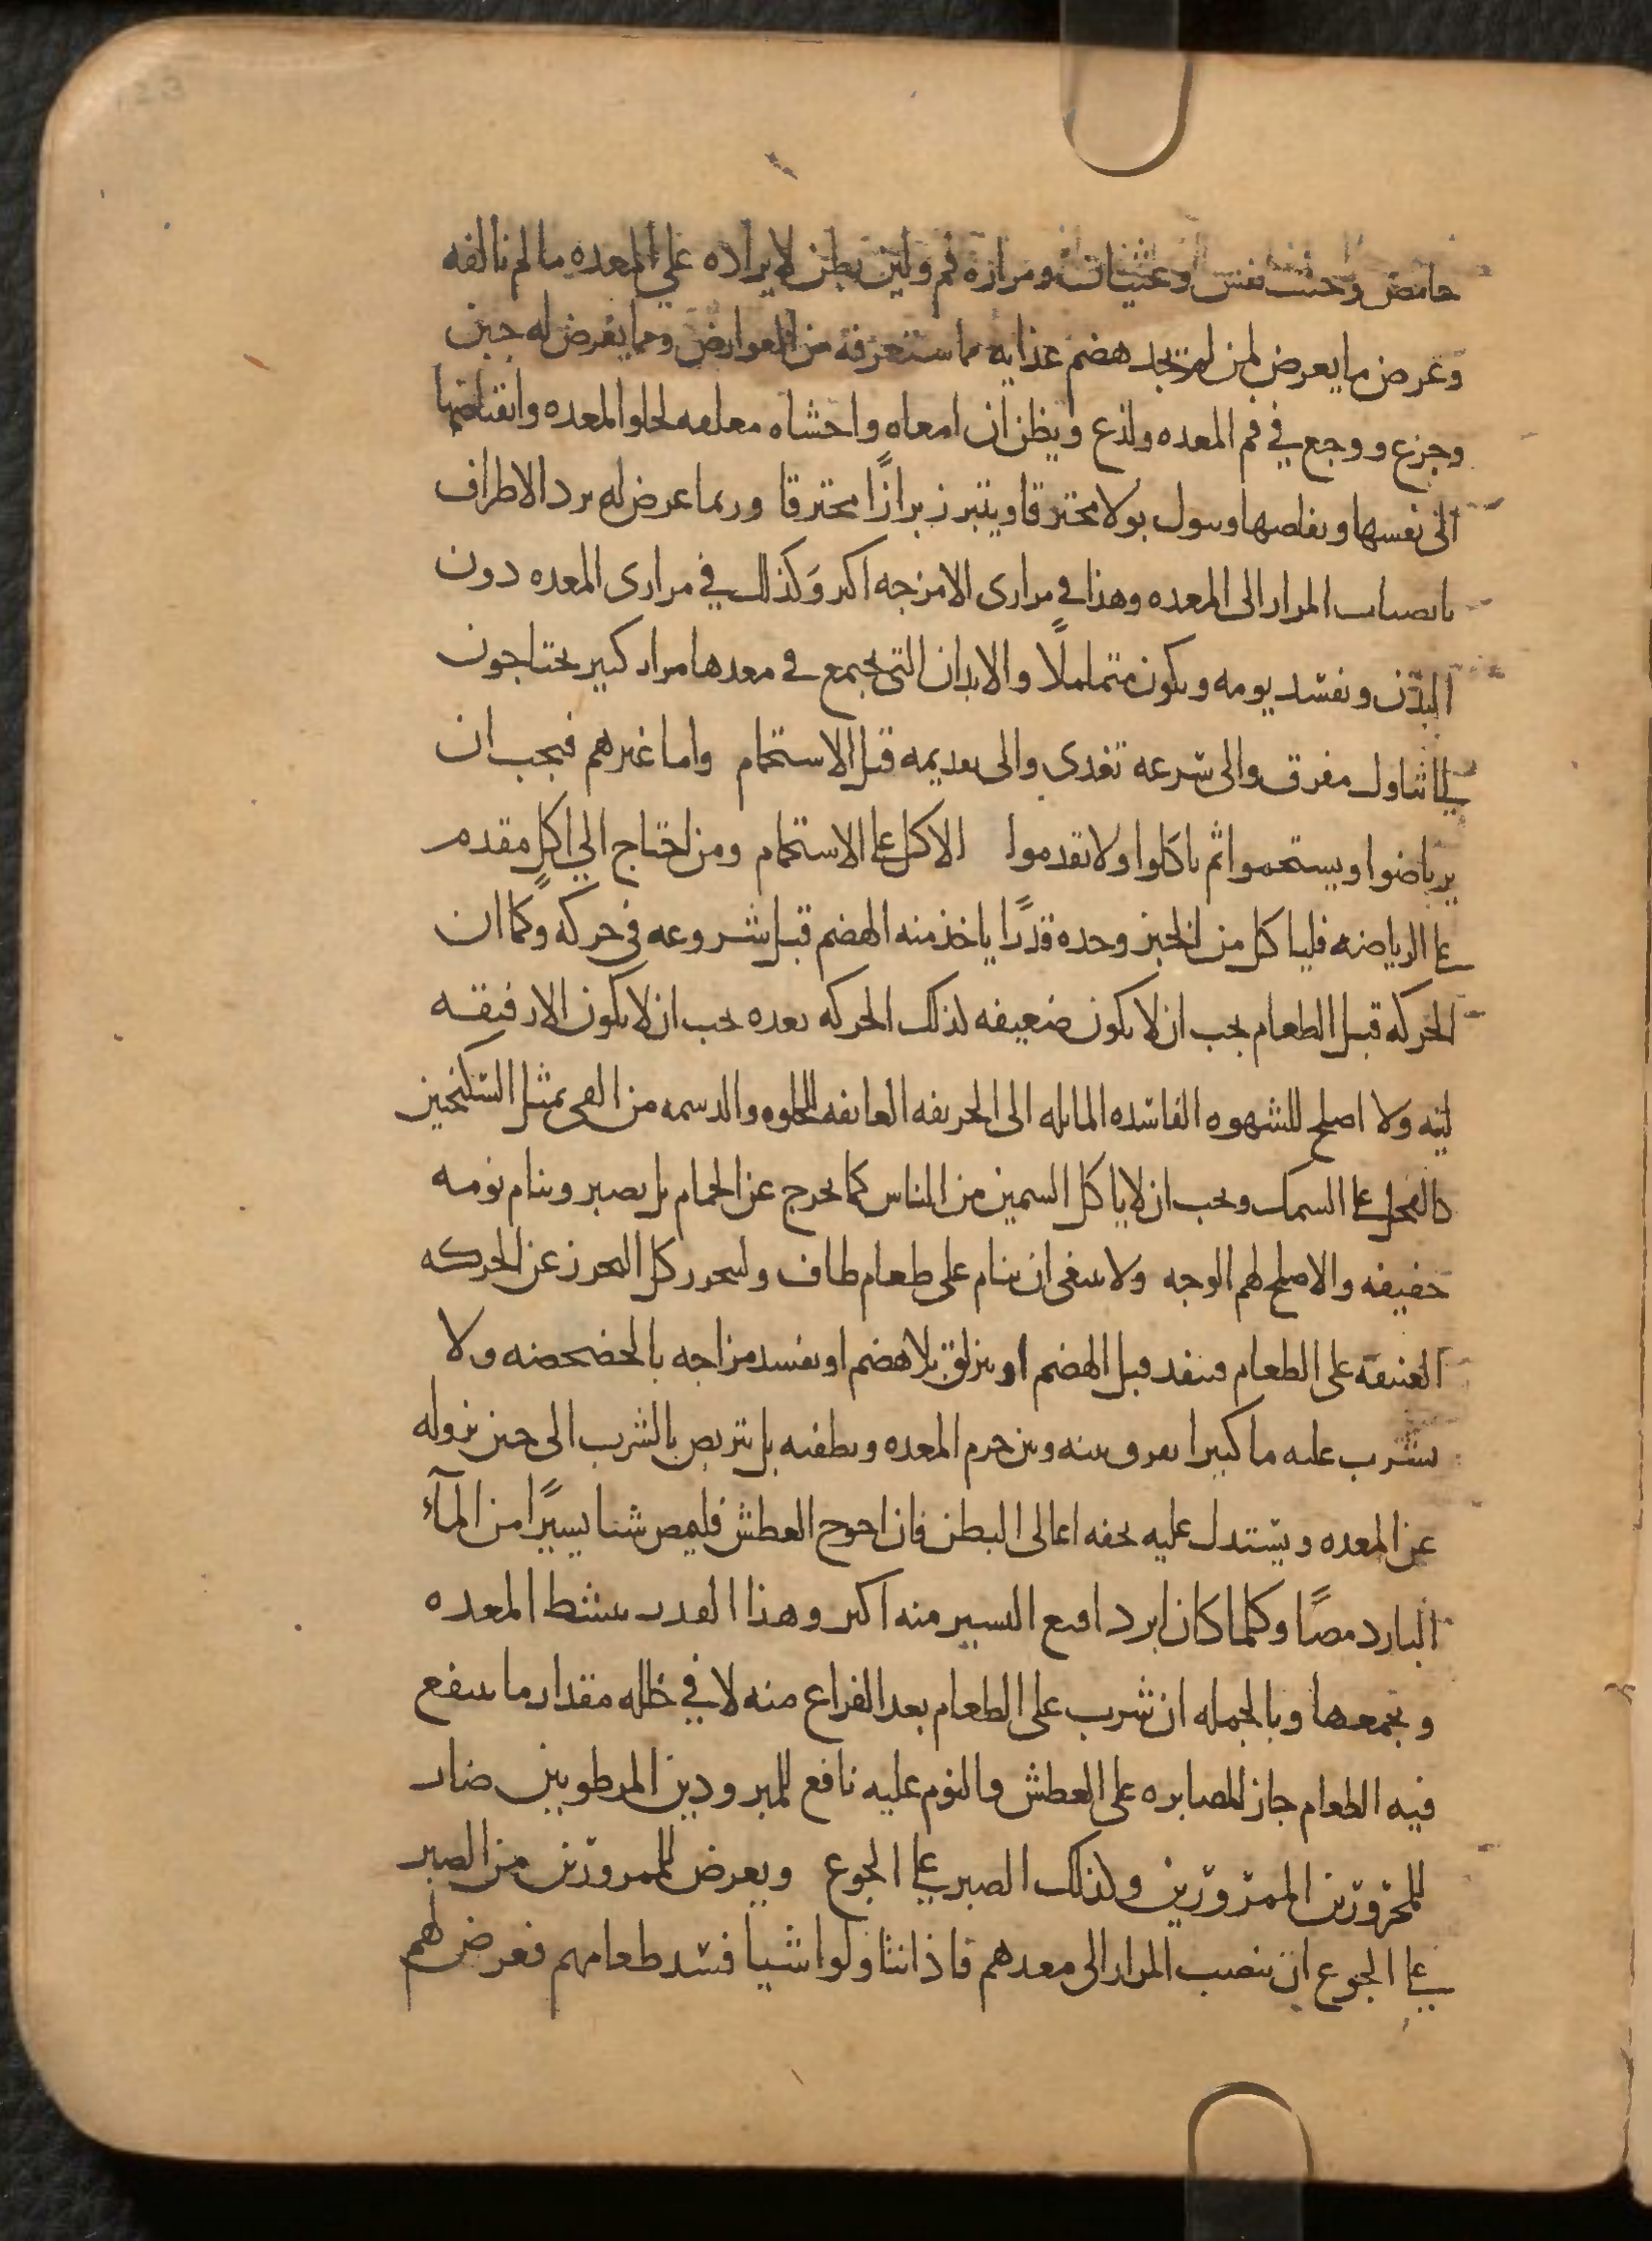 حامض وخبث نفس وغثيان ومرارة فم ولين بطن لايراده علي المعده ما لم تالفه
وعرض ما يعرض لمن لم يجد هضم غذايه مما ستعرفه من العوارض ومما يعرض له جبن
وجزع ووجع في فم المعده ولذع ويظن ان امعاه واحشاه معلقه لخلو المعده وانقباضها
الى نفسها وتقلصها ويبول بولا محترقا ويتبرز برازًا محترقا وربما عرض له برد الاطراف
بانصباب المرار الى المعده وهذا في مراري الامزجه اكثر وَكذلك في مراري المعده دون
البدن ويفسد نومه ويكون متململًا والابدان التي يجتمع في معدها مرار كثير يحتاجون
الى تناول مفرق والى سرعه تغدي والى تقديمه قبل الاستحمام واما غيرهم فيجب ان
يرتاضوا ويستحموا ثم ياكلوا ولا يقدموا الاكل على الاستحمام ومن احتاج الي اكلٍ مقدم
على الرياضه فلياكل من الخبز وحده قدرًا ياخذ منه الهضم قبل شروعه في حركهٍ وكما ان
الحركه قبل الطعام يجب ان لا يكون ضعيفه لذلك الحركه بعده يجب ان لا يكون الا رفيقه
لينه ولا اصلح للشهوه الفاسده المايله الى الحريفه العايفه للحلوه والدسمه من القي بمثل السكنجبين
والفجل على السمك ويجب ان لا ياكل السمين من الناس كما يخرج عن الحمام بل يصبر وينام نومه
خفيفه والاصلح لهم الوجبه ولا ينبغي ان ينام على طعام طاف وليحرز كل التحرز عن الحركه
العنيفه على الطعام فينفد قبل الهضم او ينزلق بلا هضم او يفسد مزاجه بالخضخضه ولا
يشرب عليه ما كثيرا يفرق بينه وبين جرم المعده ويطفيه بل يتربص بالشرب الى حين نزوله
عن المعده ويستدل عليه بخفه اعالى البطن فان احوج العطش فليمص شيا يسيرًا من المآء
البارد مصًا وكلما كان ابرد اقنع اليسير منه اكثر وهذا القدر ينشط المعده
ويجمعها وبالجمله ان شرب على الطعام بعد الفراغ منه لا في خلله مقدار ما ينفع
فيه الطعام جاز المصابره على العطش والنوم عليه نافع للمبرودين المرطوبين ضار
للمحرورين الممرورين وكذلك الصبر على الجوع ويعرض للممرورين من الصبر
على الجوع ان ينصب المرار الى معدهم فاذا تناولوا شيا فسد طعامهم فعرض لهم